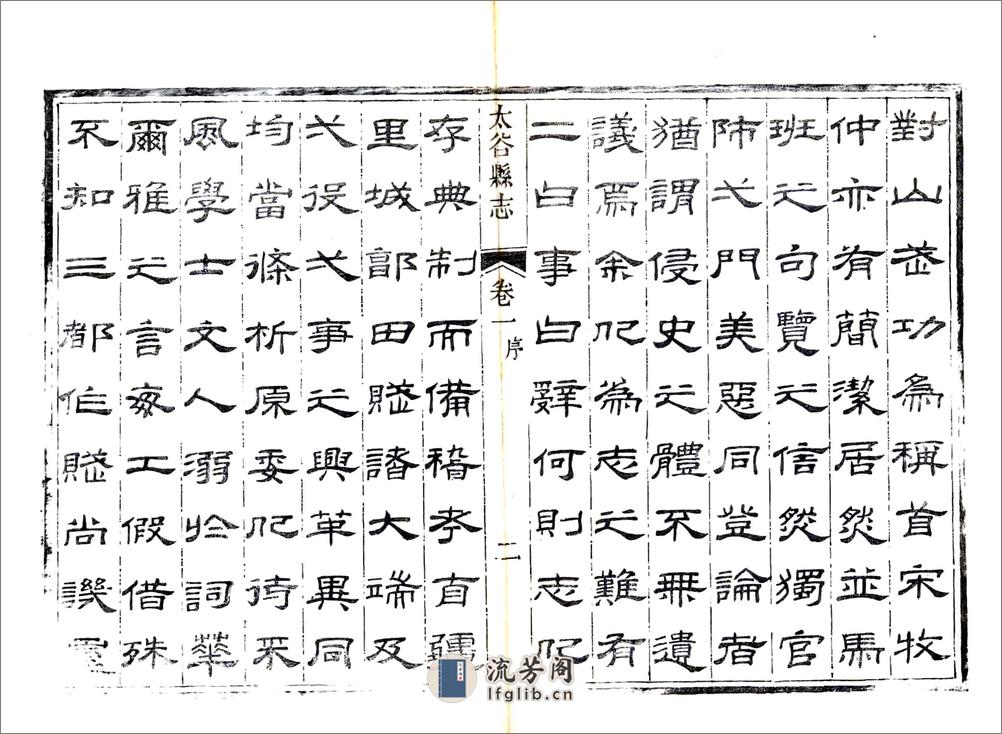 對山武功為稱首宋牧
仲亦有簡潔居然並馬
班之句覽之信然獨官
師弌門美惡同登論者
猶謂侵史之體不無遺
議焉余以為志之難有
二曰事曰辭何則志以
太谷縣志 卷一 序 二
存典制而備稽考自疆
里城郭田賦諸大端及
弌役弌事之興革異同
均當條析原委以待采
風學士文人溺於詞華
爾雅之言每工假借殊
不知三都作賦尚譏
流芳阁
lfglib.cn